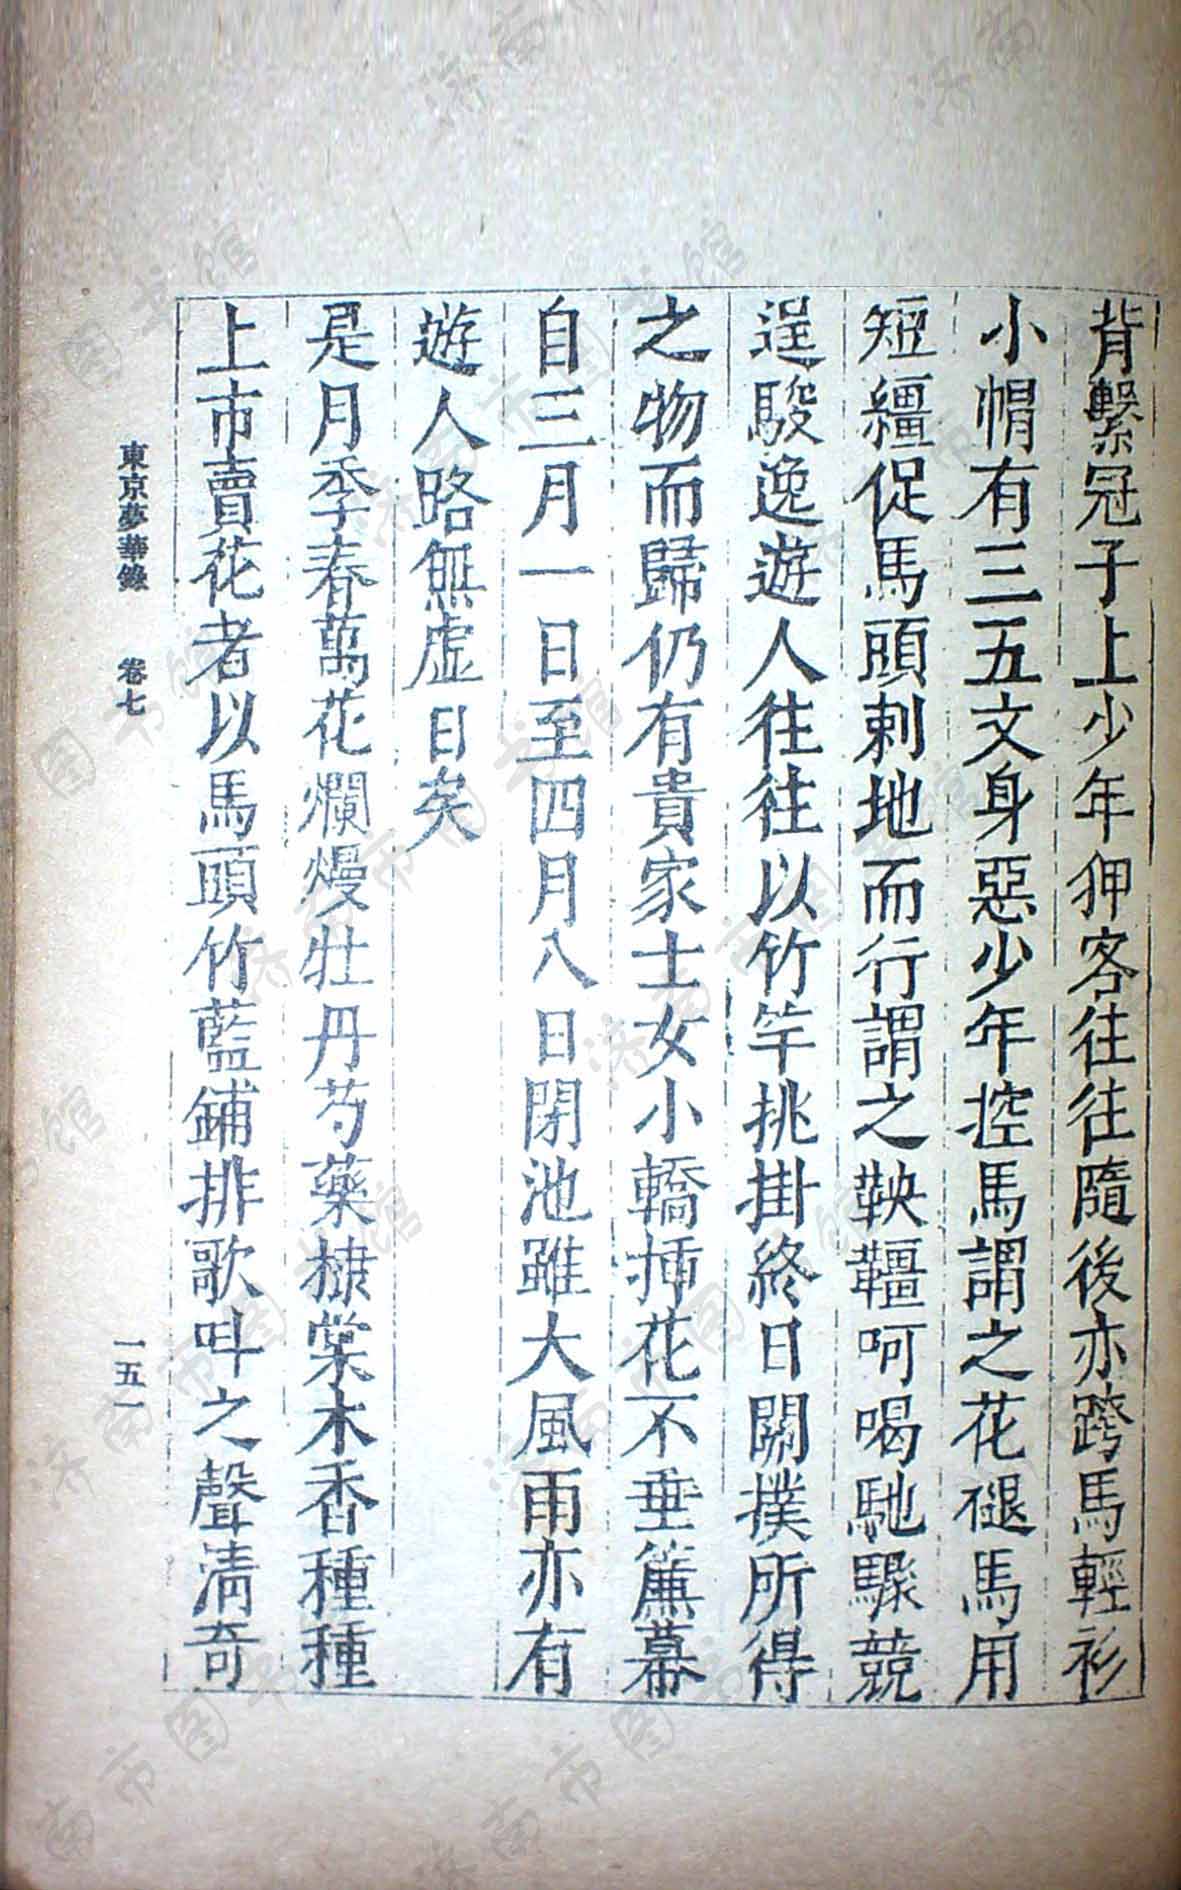 背繫冠子上少年狎客往往隨後亦跨馬輕衫
小帽有三五文身惡少年控馬謂之花褪馬用
短繮促馬頭剌地而行謂之鞅韁呵喝馳驟競
逞駿逸遊人往往以竹竿挑掛終日關撲所得
之物而歸仍有貴家士女小轎揷花不垂簾幕
自三月一日至四月八日閉池雖大風雨亦有
遊人路無虛日矣
是月季春萬花爛熳牡丹芍藥棣棠木香種種
上市賣花者以馬頭竹藍鋪排歌呌之聲清奇
東京夢華錄 卷七 一五一